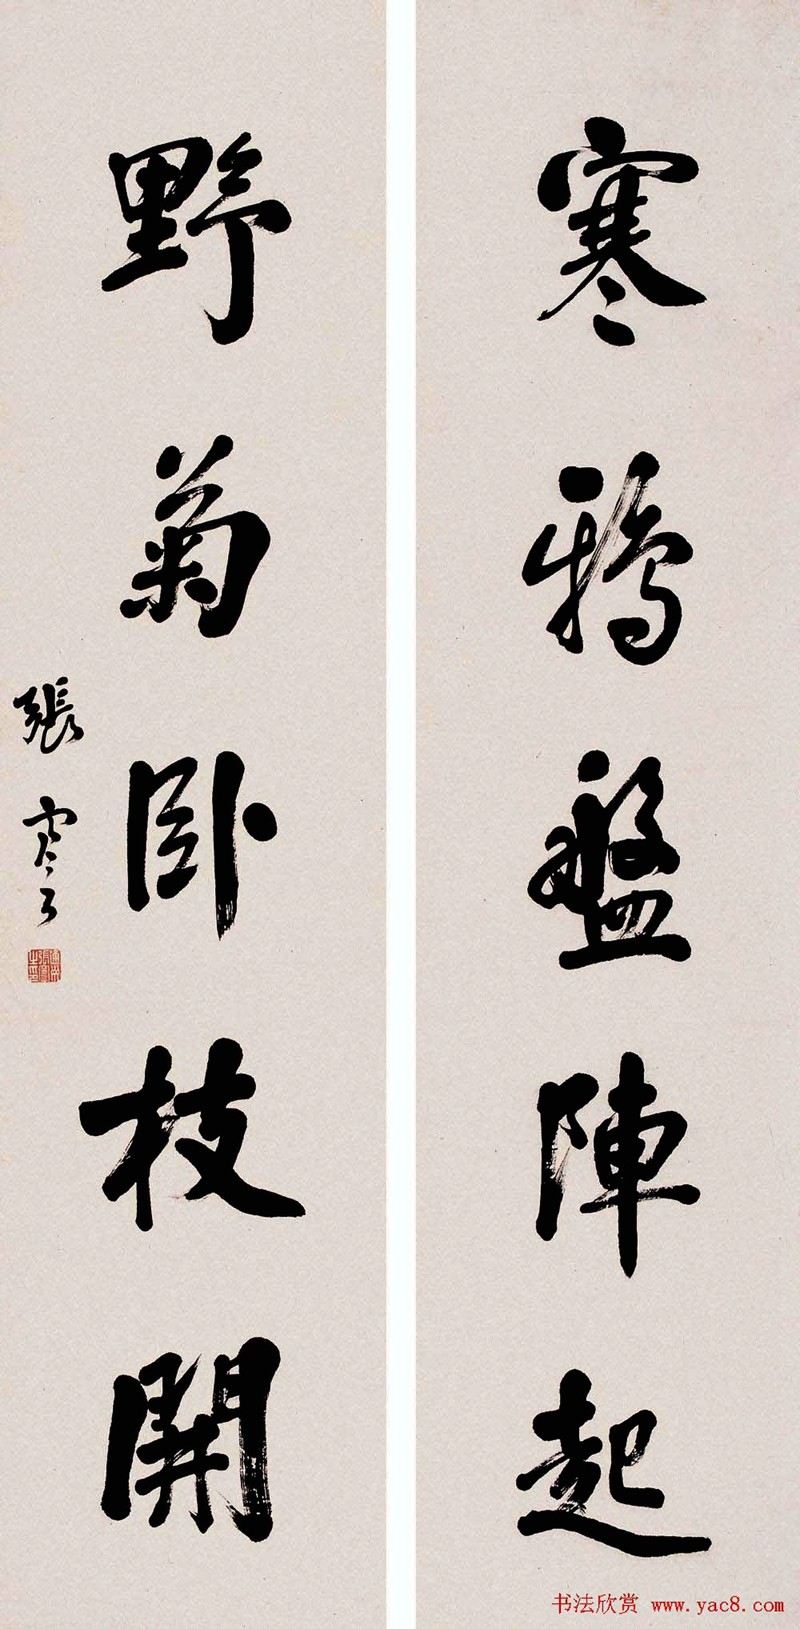 寒鴉盤陣起
野菊卧枝開
張寒雲
书法欣赏 www.yac8.com